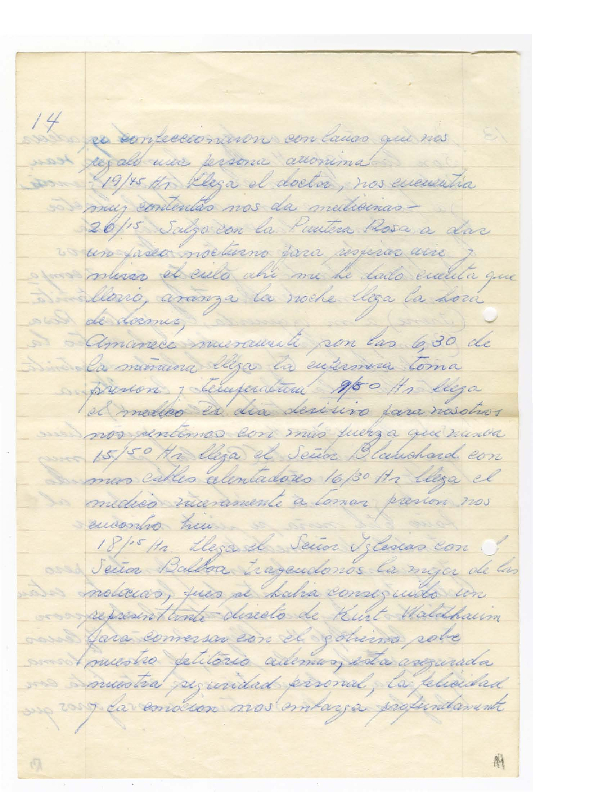 14
se confeccionaron con lanas que nos
regaló una persona anonima
19/45 Hr llega el doctor, nos encuentra
muy contentos nos da medicinas-
20/15 Salgo con la Pantera Rosa a dar
un paseo nocturno para respirar aire y
mirar el cielo ahi me he dado cuenta que
llovio, avanza la noche llega la hora
de dormir,
Amanece nuevamente son las 6,30 de
la mañana llega la enfermera toma
presion y temperatura 9/50 Hr llega
el medico es dia decisivo para nosotros
nos sentimos con más fuerza que nunca
15/50 Hr llega el Señor Blanchard con
mas cables alentadores 16/30 Hr llega el
medico nuevamente a tomar presion nos
encontro bien
18/15 Hr llega el Señor Iglesias con el
Señor Balboa trayendonos la mejor de las
noticias, pues se habia conseguido un
representante directo de Kurt Waldhaim
para conversar con el gobierno sobre
nuestro petitorio ademas, esta asegurada
nuestra seguridad personal, la felicidad
y la emocion nos embarga profundamente